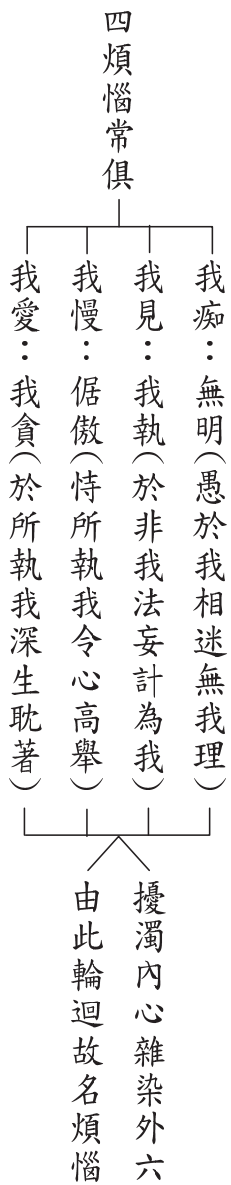 四煩惱常俱
我痴：無明(愚於我相迷無我理)
我見：我執(於非我法妄計為我)
我慢：倨傲(恃所執我令心高舉)
我愛：我貪(於所執我深生耽著)
擾濁內心雜染外六
由此輪迴故名煩惱